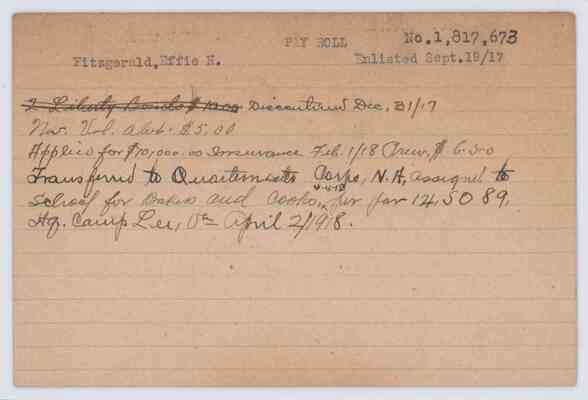 PAY ROLL No.1,817,673
Fitzgerald,Effie H. Enlisted Sept.19/17
2 Liberty Bonds $ 10.00 Discontinued Dec. 31/17
Nov. Vol. alot. $5.00
Applied for $10,000.00 Insurance Feb. 1/18 Prem, $ 6.50
Transferred to Quartermaster Corps, N.A, assigned to
School for Bakers and Cooks, per par 124 SO 89,
Hq. Camp Lee, Va April 2/1918.